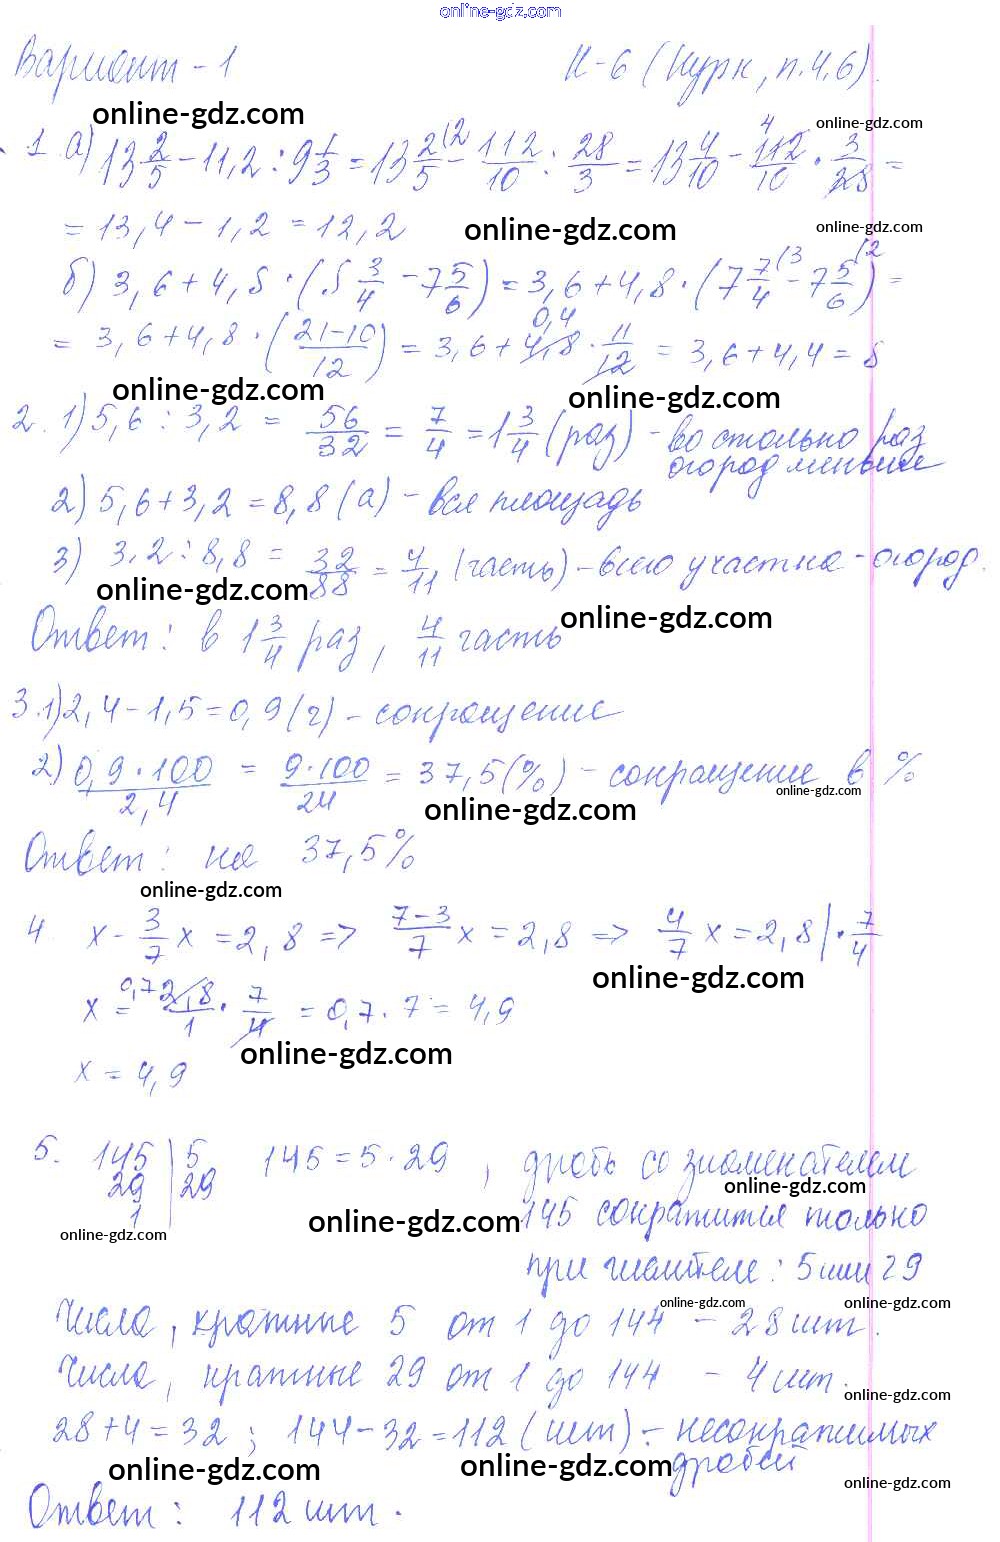 online-gdz.com
Вариант - 1 К-6 (Нурк, п.4,6).
online-gdz.com online-gdz.com
1. а) 13 2/5 - 11,2 : 9 1/3 = 13 2/5 (2 - 112/10 : 28/3 = 13 4/10 - 112/10 · 3/28 = 4
= 13,4 - 1,2 = 12,2
online-gdz.com online-gdz.com
б) 3,6 + 4,8 · (8 3/4 - 7 5/6) = 3,6 + 4,8 · (7 7/4 (3 - 7 5/6 (2) =
= 3,6 + 4,8 · (21-10/12) = 3,6 + 4,8 · 11/12 = 3,6 + 4,4 = 8 0,4
online-gdz.com online-gdz.com
2. 1) 5,6 : 3,2 = 56/32 = 7/4 = 1 3/4 (раз) - во столько раз
огород меньше
2) 5,6 + 3,2 = 8,8 (а) - вся площадь
3) 3,2 : 8,8 = 32/88 = 4/11 (часть) - всего участка - огород.
online-gdz.com online-gdz.com
Ответ: в 1 3/4 раз, 4/11 часть
3. 1) 2,4 - 1,5 = 0,9 (г) - сокращение
2) 0,9 · 100/2,4 = 9·100/24 = 37,5 (%) - сокращение в %
online-gdz.com online-gdz.com
Ответ: на 37,5%
online-gdz.com
4. x - 3/7 x = 2,8 => 7-3/7 x = 2,8 => 4/7 x = 2,8 | · 7/4
online-gdz.com
x = 0,7 2,8/1 · 7/4 = 0,7 · 7 = 4,9
online-gdz.com
x = 4,9
5. 145 | 5 145 = 5 · 29, дробь со знаменателем
29 | 29 online-gdz.com
1 | 145 сократится только
online-gdz.com online-gdz.com
при числителе: 5 или 29
online-gdz.com online-gdz.com
Числа, кратные 5 от 1 до 144 - 28 шт.
Числа, кратные 29 от 1 до 144 - 4 шт.
online-gdz.com
28 + 4 = 32; 144 - 32 = 112 (шт) - несократимых
дробей
online-gdz.com online-gdz.com online-gdz.com
Ответ: 112 шт.